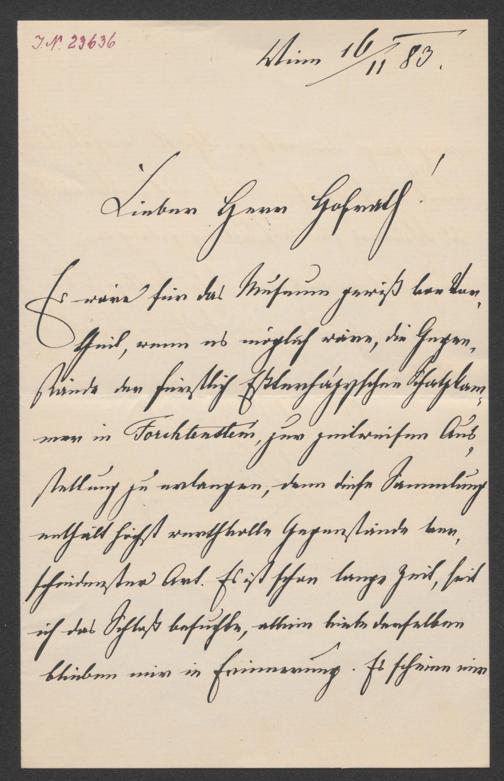 J.N. 23636
Wien 16/11 83.
Lieber Herr Hofrath!
Es wäre für das Museum gewiß von Vor-
theil, wenn es möglich wäre, die Gegen-
stände der fürstlich Esterházyschen Schatzkam-
mer in Forchtenstein, zur zeitweisen Aus-
stellung zu erlangen, denn diese Sammlung
enthält höchst werthvolle Gegenstände ver-
schiedenster Art. Es ist schon lange Zeit, seit
ich das Schloß besuchte, allein viele derselben
blieben mir in Erinnerung. Es schienen mir